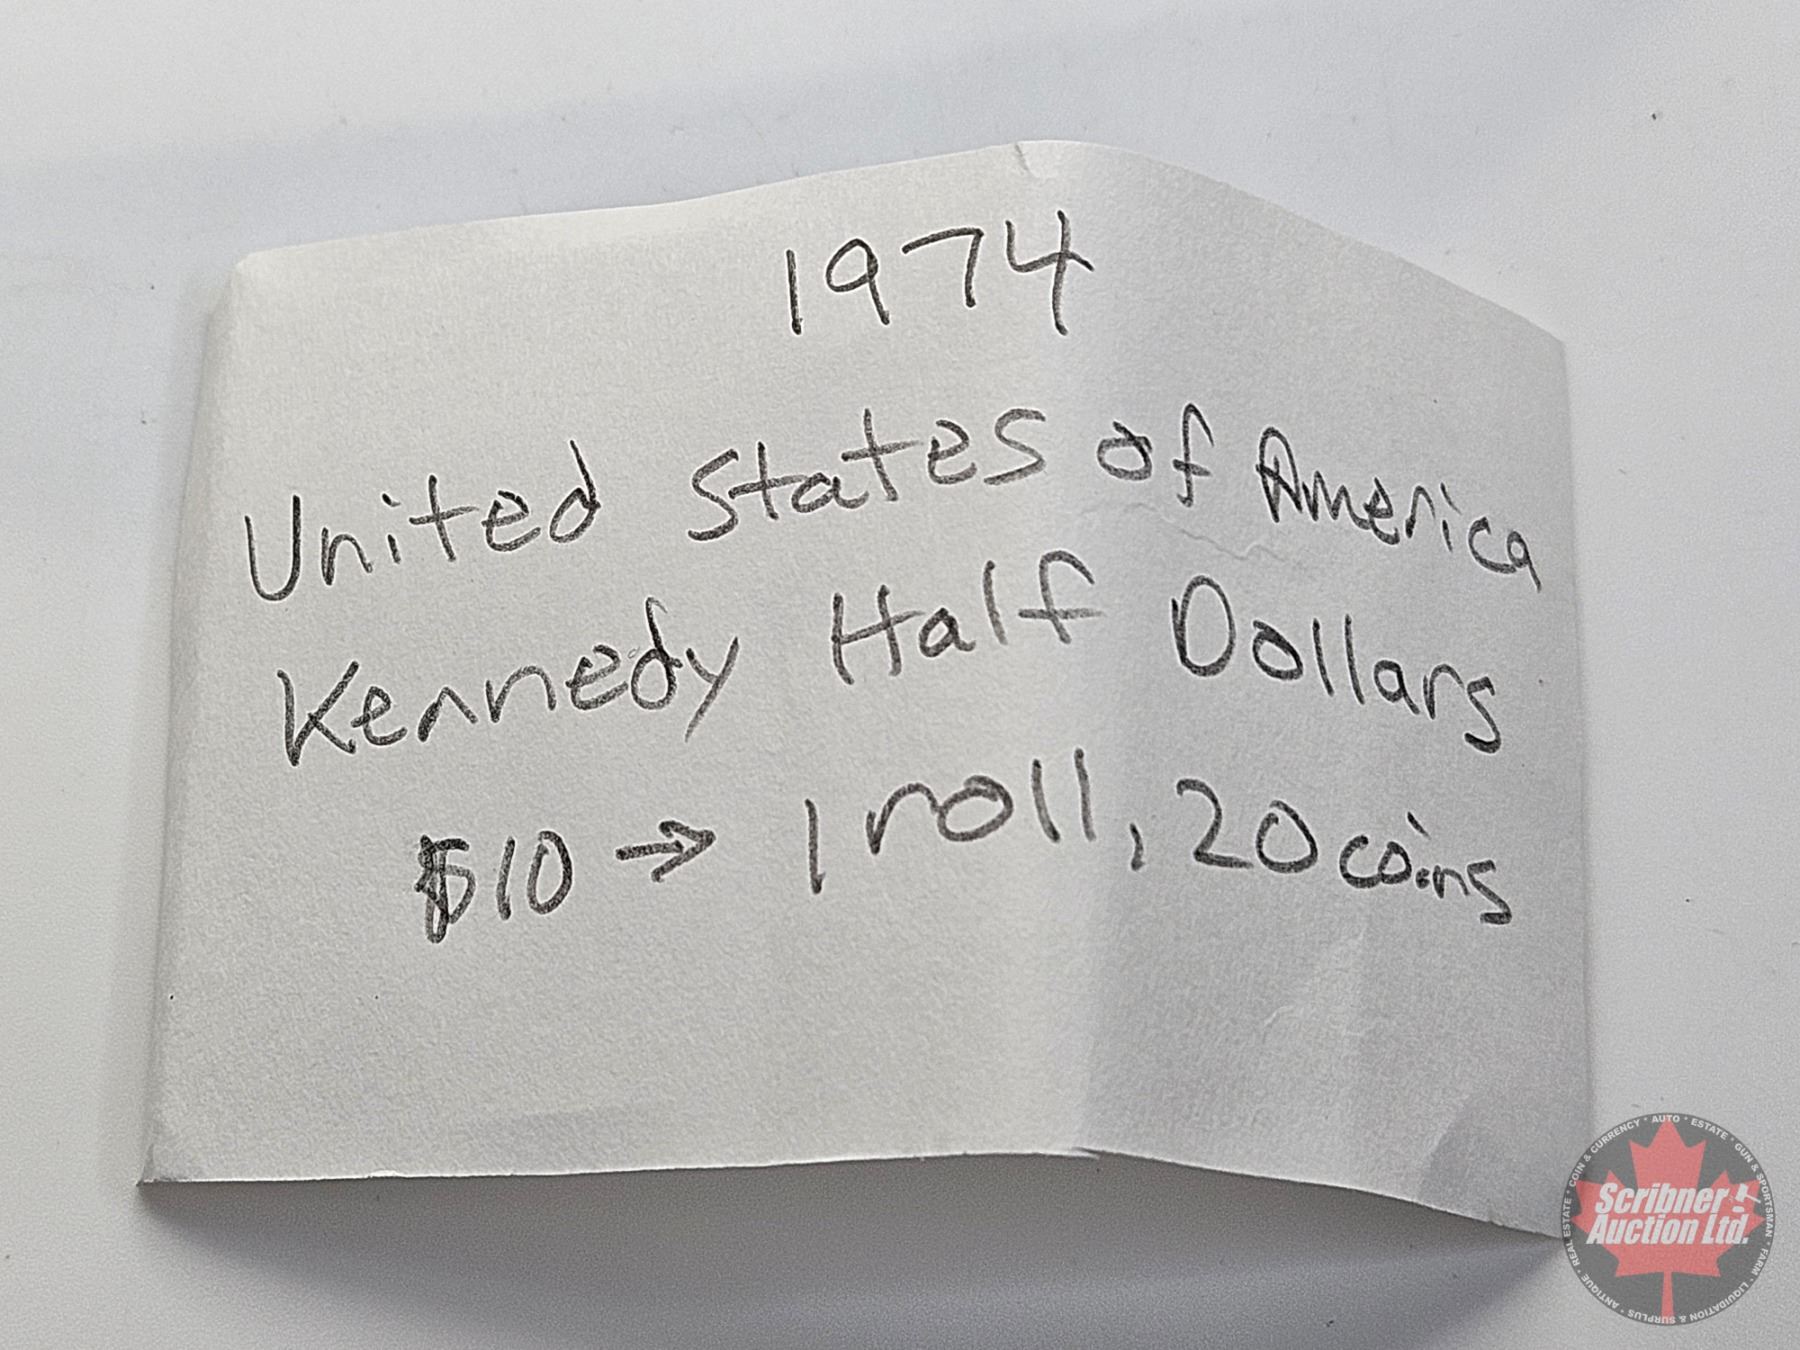 1974
United States of America
Kennedy Half Dollars
$10 → 1 roll, 20 coins
COIN & CURRENCY * AUTO * ESTATE * GUN & SPORTSMAN * FARM * LIQUIDATION & SURPLUS * ANTIQUE * REAL ESTATE *
Scribner
Auction Ltd.